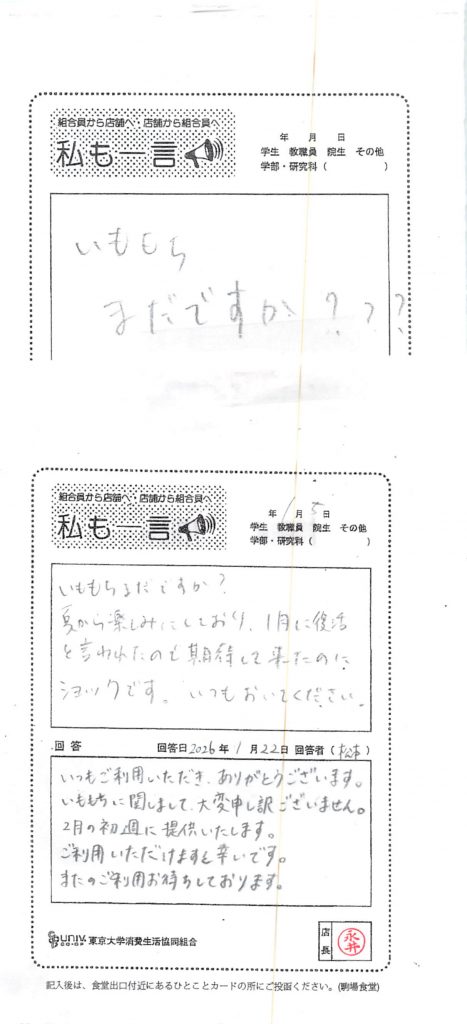 組合員から店舗へ・店舗から組合員へ
私も一言
年 月 日
学生 教職員 院生 その他
学部・研究科 ( )
いももち
まだですか???
組合員から店舗へ・店舗から組合員へ
私も一言
年 1月 5日
学生 教職員 院生 その他
学部・研究科 ( )
いももちまだですか?
夏から楽しみにしており、1月に復活
と言われたので期待して来たのに
ショックです。いつもおいてください。
回答 回答日2026年1月22日 回答者(松本)
いつもご利用いただき、ありがとうございます。
いももちに関しまして、大変申し訳ございません。
2月の初週に提供いたします。
ご利用いただけますと幸いです。
またのご利用お待ちしております。
UNIV. CO-OP 東京大学消費生活協同組合
店長 永井
記入後は、食堂出口付近にあるひとことカードの所にご投函ください。(駒場食堂)